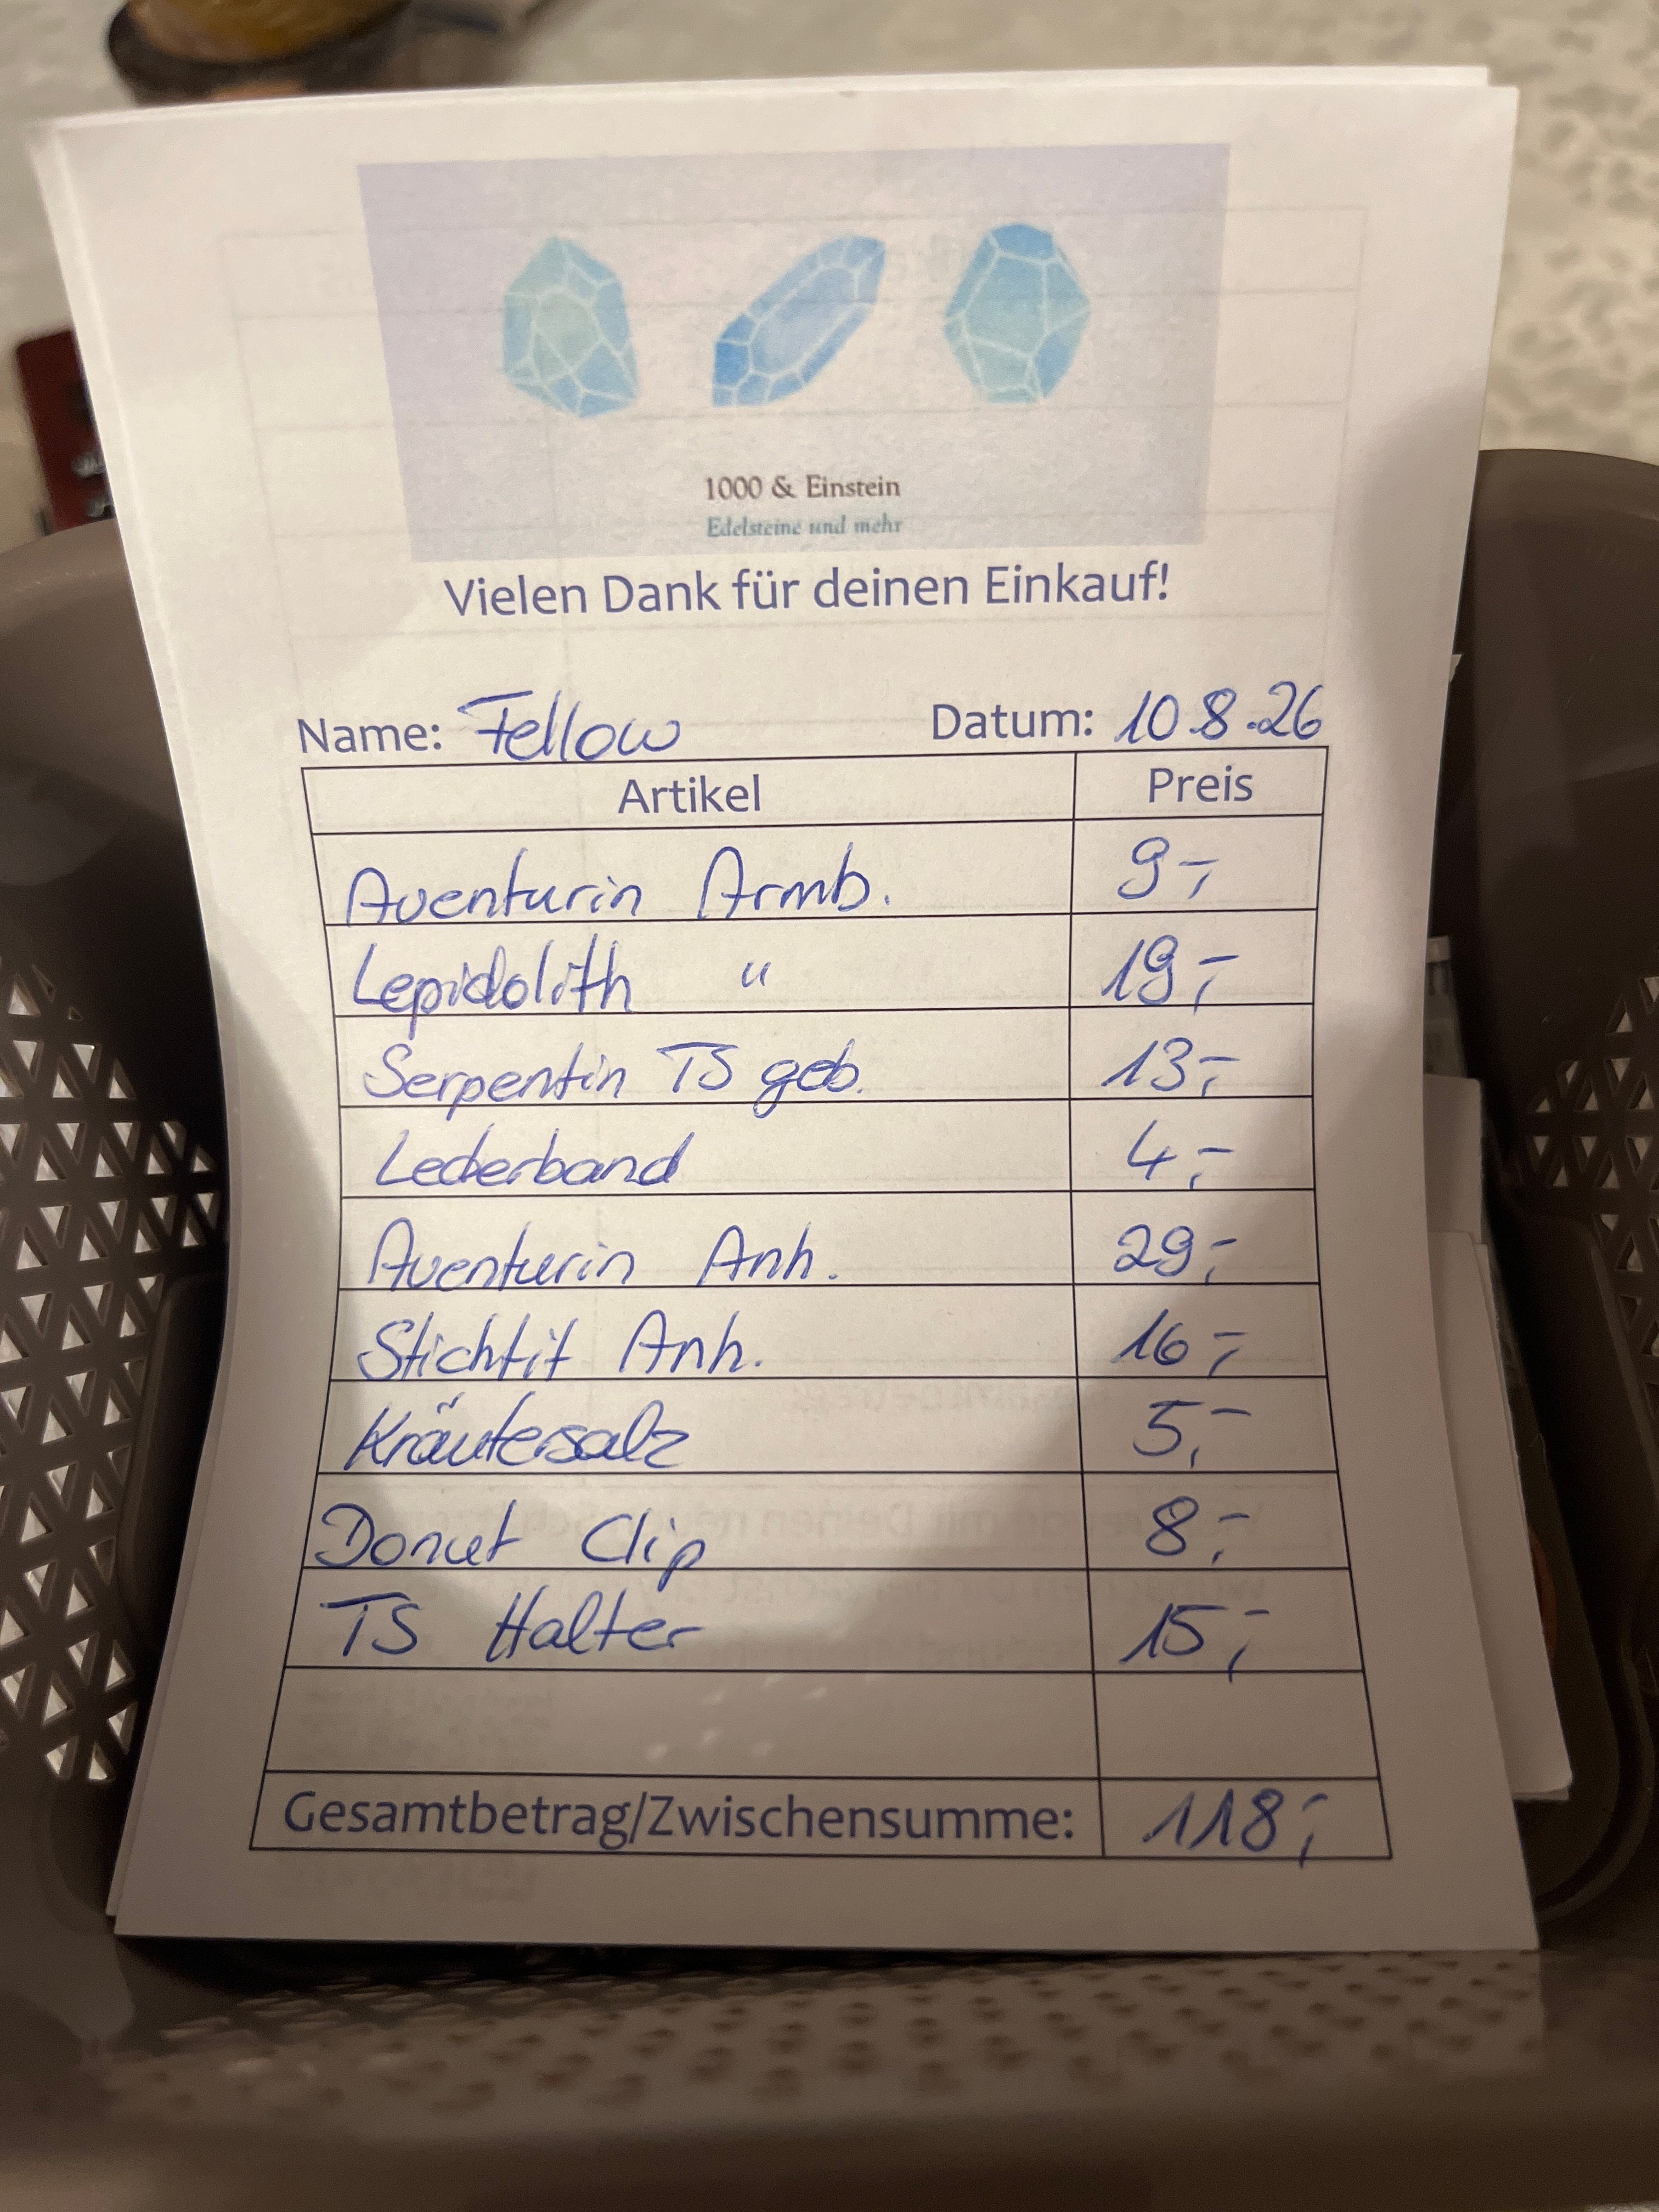 1000 & Einstein
Edelsteine und mehr
Vielen Dank für deinen Einkauf!
Name: Fellow Datum: 10.8.26
Artikel Preis
Aventurin Armb. 9,-
Lepidolith " 19,-
Serpentin TS geb. 13,-
Lederband 4,-
Aventurin Anh. 29,-
Stichtit Anh. 16,-
Kräutersalz 5,-
Donut Clip 8,-
TS Halter 15,-
Gesamtbetrag/Zwischensumme: 118,-